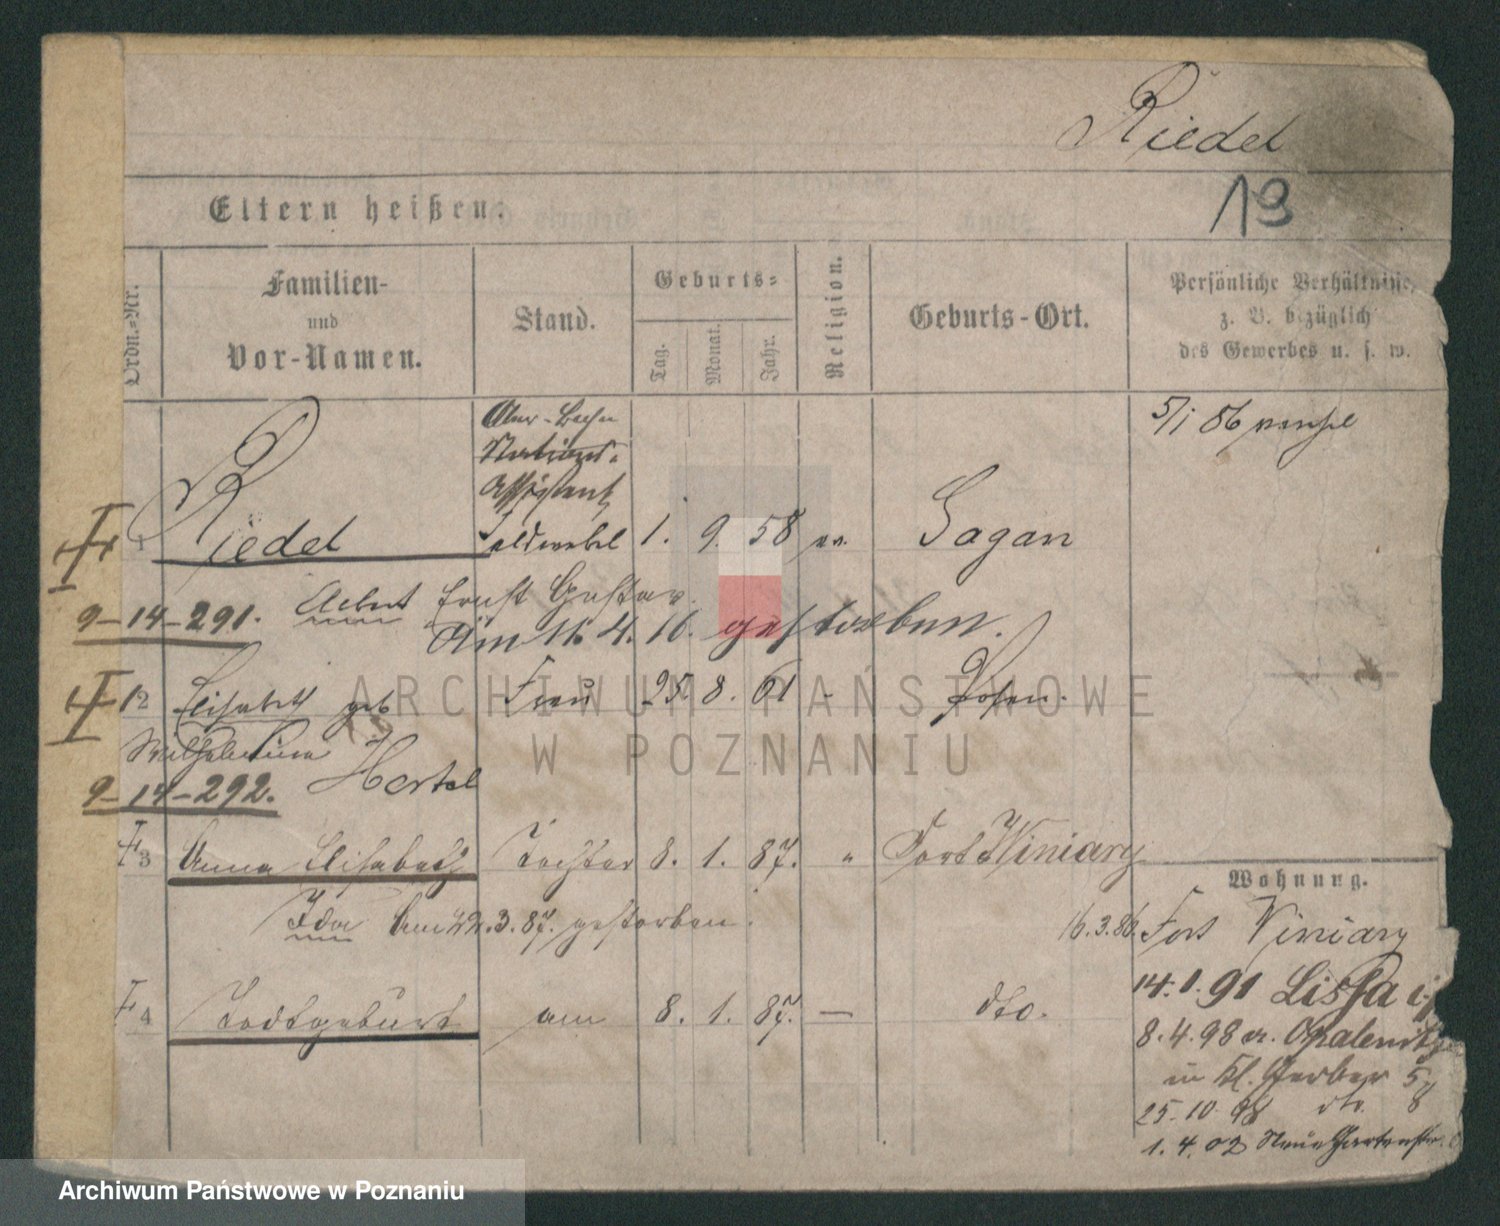 Riedel
13
Eltern heißen:
Ordn.-Nr.
Familien-
und
Vor-Namen.
Stand.
Geburts-
Tag.
Monat.
Jahr.
Religion.
Geburts-Ort.
Persönliche Verhältnisse,
z. B. bezüglich
des Gewerbes u. s. w.
5/1 86
Stations-
Assistent
1 Riedel Feldwebel 1. 9. 58 ev. Sagan
9-14-291. Ernst Gustav
Am 11. 4. 16. gestorben.
2 Elisabeth geb Frau 25. 8. 61 - Posen.
Wilhelmine
Hertel
9-14-292.
3 Anna Elisabeth Tochter 8. 1. 87. " Fort Winiary
Ida Am 22. 3. 87. gestorben.
4 Todtgeburt am 8. 1. 87. — dto.
Wohnung.
16.3.86. Fort Viniary
14.1.91 Lissa i/
8.4.98 v. Opalenitz
in Kl. Gerber 5
25.10.98 dto. 8
1.4.02 Neue Gartenstr.
ARCHIWUM PAŃSTWOWE
W POZNANIU
Archiwum Państwowe w Poznaniu